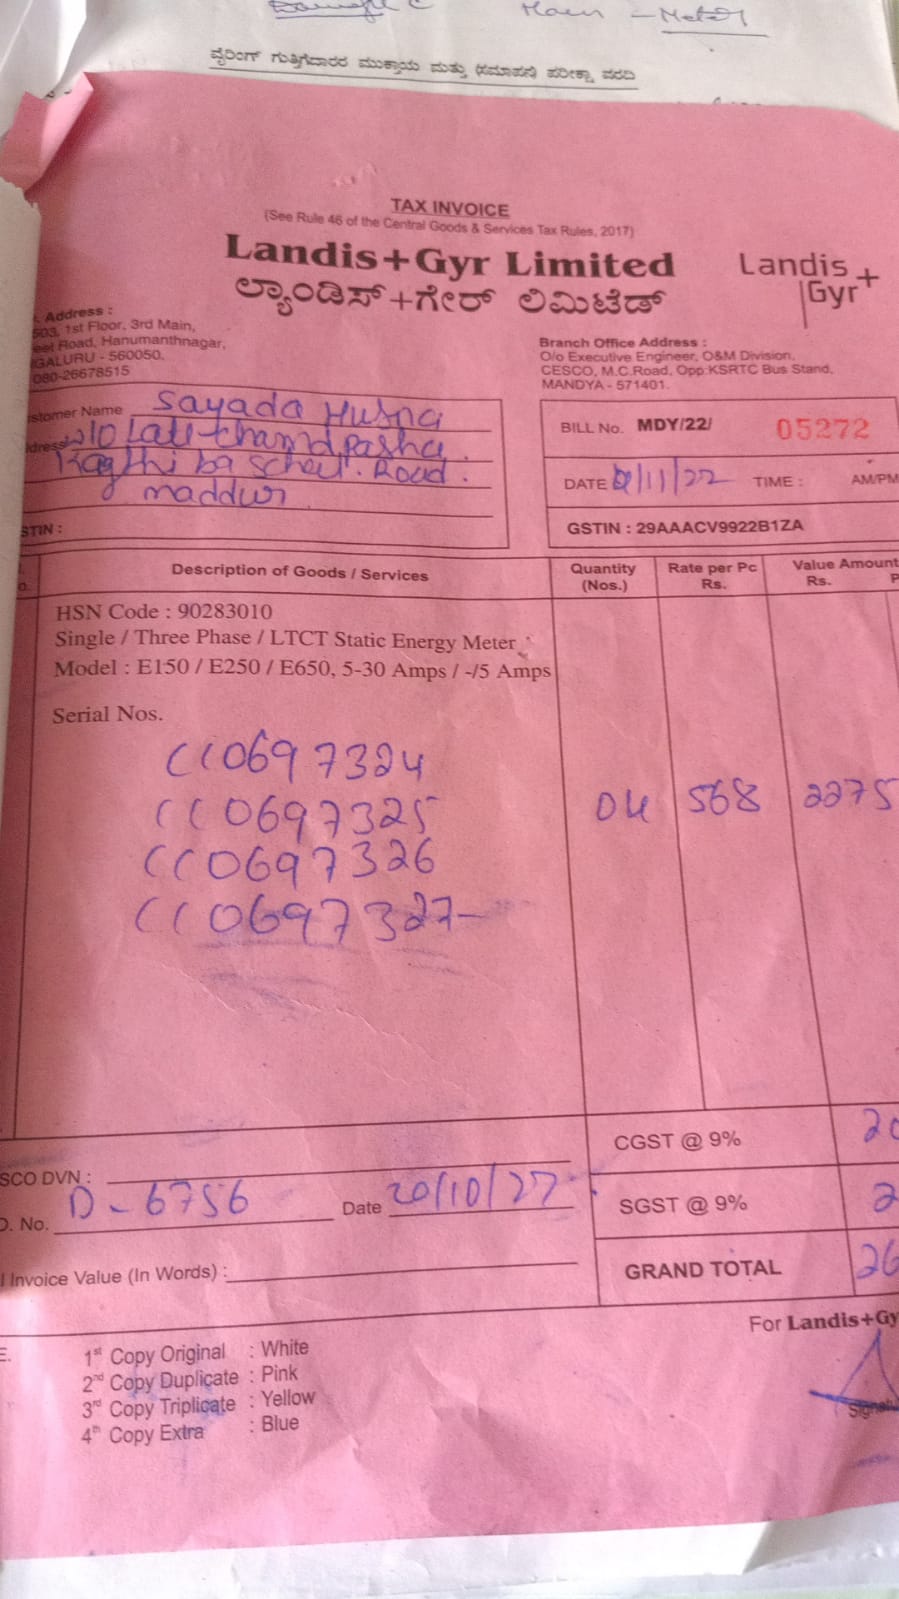 Main - Meter
ವೈರಿಂಗ್ ಗುತ್ತಿಗೆದಾರರ ಮುಕ್ತಾಯ ಮತ್ತು (ಸಮಾಪನ) ಪರೀಕ್ಷಾ ವರದಿ
TAX INVOICE
(See Rule 46 of the Central Goods & Services Tax Rules, 2017)
Landis+Gyr Limited
ಲ್ಯಾಂಡಿಸ್+ಗೇರ್ ಲಿಮಿಟೆಡ್
Landis+
Gyr
Address :
503, 1st Floor, 3rd Main,
eet Road, Hanumanthnagar,
GALURU - 560050.
080-26678515
Branch Office Address :
O/o Executive Engineer, O&M Division,
CESCO, M.C.Road, Opp:KSRTC Bus Stand,
MANDYA - 571401.
stomer Name Sayada Husna
dress w/o Late chamdpasha.
School Road.
maddur
STIN :
BILL No. MDY/22/ 05272
DATE /11/22 TIME : AM/PM
GSTIN : 29AAACV9922B1ZA
Description of Goods / Services Quantity (Nos.) Rate per Pc Rs. Value Amount Rs. P
HSN Code : 90283010
Single / Three Phase / LTCT Static Energy Meter
Model : E150 / E250 / E650, 5-30 Amps / -/5 Amps
Serial Nos.
CC0697324
CC0697325 04 568 2275
CC0697326
CC0697327
CGST @ 9% 20
SGST @ 9% 2
GRAND TOTAL 26
SCO DVN :
D. No. D-6756 Date 20/10/22
l Invoice Value (In Words) :
For Landis+Gy
E. 1st Copy Original : White
2nd Copy Duplicate : Pink
3rd Copy Triplicate : Yellow
4th Copy Extra : Blue